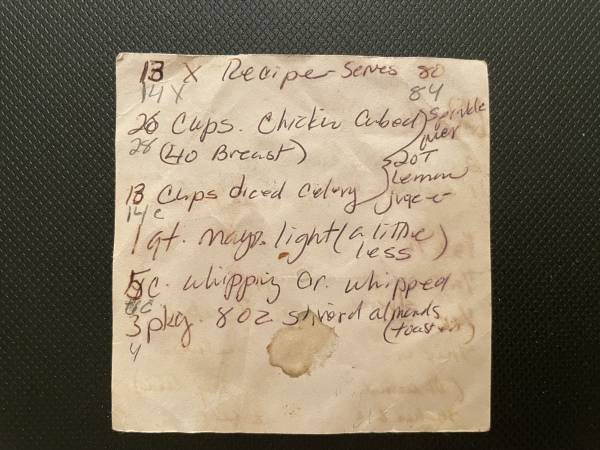 13 X Recipe - Serves 80
14 X 84
26 Cups. Chicken Cubed
28 (40 Breast)
sprinkle
over
20T
Lemon
juice
13 Cups diced Celery
14 c
1 qt. mayo. light (a little
less)
5 c. whipping Cr. whipped
6 c
3 pkg. 8 oz slivered almonds
4 (toasted)